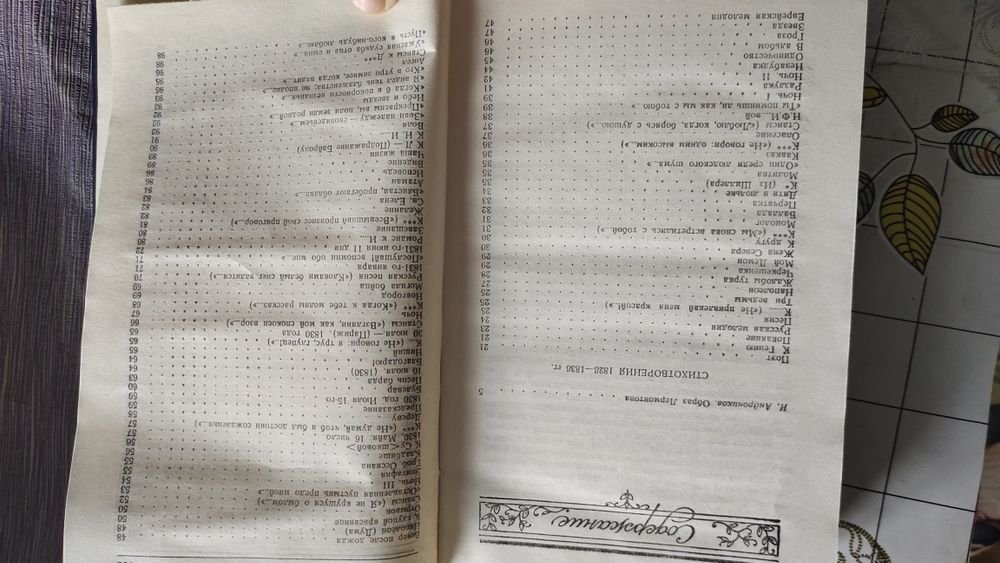 Содержание
И. Андроников. Образ Лермонтова . . . 5
СТИХОТВОРЕНИЯ 1828—1836 гг.
Поэт
К Гению . . . 21
Покаяние . . . 21
Русская мелодия . . . 23
Песня . . . 24
К...... («Не привлекай меня красой!..») . . . 25
Три ведьмы . . . 25
Наполеон . . . 27
Жалобы турка . . . 29
Черкешенка . . . 29
Мой Демон . . . 29
Жена Севера . . . 30
К другу . . . 30
К*** («Мы снова встретились с тобой..») . . . 31
Монолог . . . 31
Баллада . . . 32
Перчатка . . . 33
Дитя в люльке . . . 34
К* (Из Шиллера) . . . 35
Молитва . . . 35
«Один среди людского шума...» . . . 35
Кавказ . . . 36
К*** («Не говори: одним высоким...») . . . 36
Опасение . . . 37
Стансы («Люблю, когда, борясь с душою...») . . . 37
Н.Ф.И...вой . . . 38
«Ты помнишь ли, как мы с тобою...» . . . 39
Ночь I . . . 39
Разлука . . . 40
Ночь II . . . 42
Незабудка . . . 44
Одиночество . . . 45
В альбом . . . 46
Гроза . . . 46
Звезда . . . 47
Еврейская мелодия . . . 47
Вечер после дождя . . . 48
Наполеон (Дума) . . . 48
К глупой красавице . . . 50
Отрывок . . . 50
Стансы («Я не крушуся о былом...») . . . 52
Оставленная пустынь предо мной... . . . 53
Ночь III . . . 54
Эпитафия . . . 55
Гроб Оссиана . . . 55
Кладбище . . . 56
К Су<шковой> . . . 56
1830. Майя. 16 число . . . 57
К*** («Не думай, чтоб я был достоин сожаленья...») . . . 57
Дереву . . . 58
Предсказание . . . 59
1830 год. Июля 15-го . . . 59
Булевар . . . 60
Песнь барда . . . 63
10 июля. (1830) . . . 64
Благодарю! . . . 64
Нищий . . . 65
К... («Не говори: я трус, глупец!..») . . . 65
30 июля.— (Париж). 1830 года . . . 65
Стансы («Взгляни, как мой спокоен взор...») . . . 66
Ночь . . . 67
К*** («Когда к тебе молвы рассказ...») . . . 68
Новгород . . . 69
Могила бойца . . . 69
Русская песня («Клоками белый снег валится...») . . . 70
1831-го января . . . 71
«Послушай! вспомни обо мне...» . . . 71
1831-го июня 11 дня . . . 72
Романс к И... . . . 80
Завещание . . . 80
К*** («Всевышний произнес свой приговор...») . . . 81
Желание . . . 82
Св. Елена . . . 83
«Блистая, пробегают облака...» . . . 84
Атаман . . . 84
Исповедь . . . 86
Видение . . . 86
Чаша жизни . . . 89
К Л.— (Подражание Байрону) . . . 89
К Н. И...... . . . 90
Воля . . . 91
«Зови надежду — сновиденьем...» . . . 92
«Прекрасны вы, поля земли родной...» . . . 92
Небо и звезды . . . 93
«Когда б в покорности незнанья...» . . . 93
«Я видел тень блаженства; но вполне...» . . . 95
«Кто в утро зимнее, когда валит» . . . 96
Ангел . . . 96
Стансы к Д*** . . . 96
«Ужасная судьба отца и сына...» . . . 98
«Пусть я кого-нибудь люблю...»